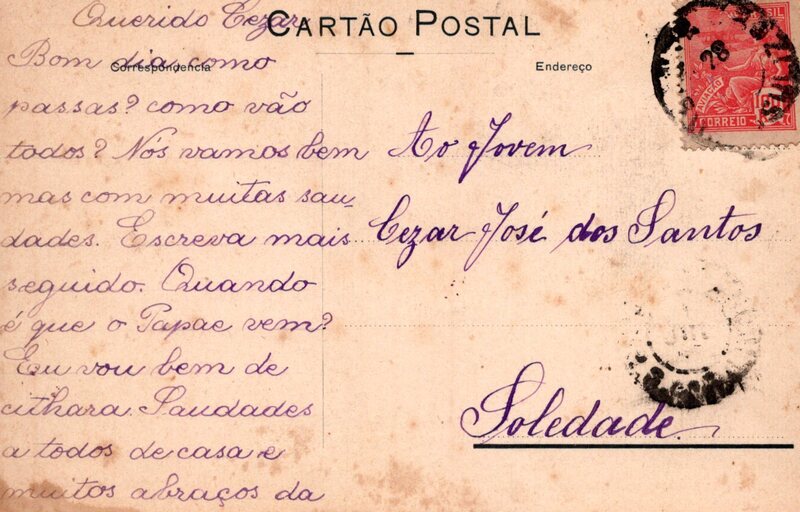 Querido Cezar,
CARTÃO POSTAL
Correspondencia
Endereço
Bom dia, como
passas? como vão
todos? Nós vamos bem
mas com muitas sau-
dades. Escreva mais
seguido. Quando
é que o Papae vem?
Eu vou bem de
cithara. Saudades
a todos de casa e
muitos abraços da
Ao Jovem
Cezar José dos Santos
Soledade.
BRASIL
AVIAÇÃO
CORREIO
28